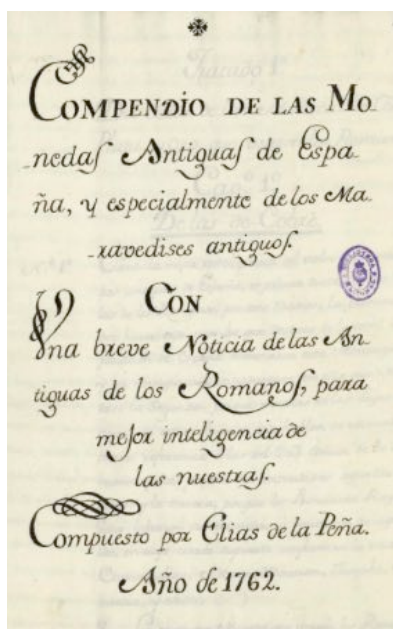 COMPENDIO DE LAS MO-
nedas Antiguas de Espa-
ña, y especialmente de los Ma-
ravedises antiguos.
CON
Una breve Noticia de las An-
tiguas de los Romanos, para
mejor inteligencia de
las nuestras.
Compuesto por Elias de la Peña.
Año de 1762.